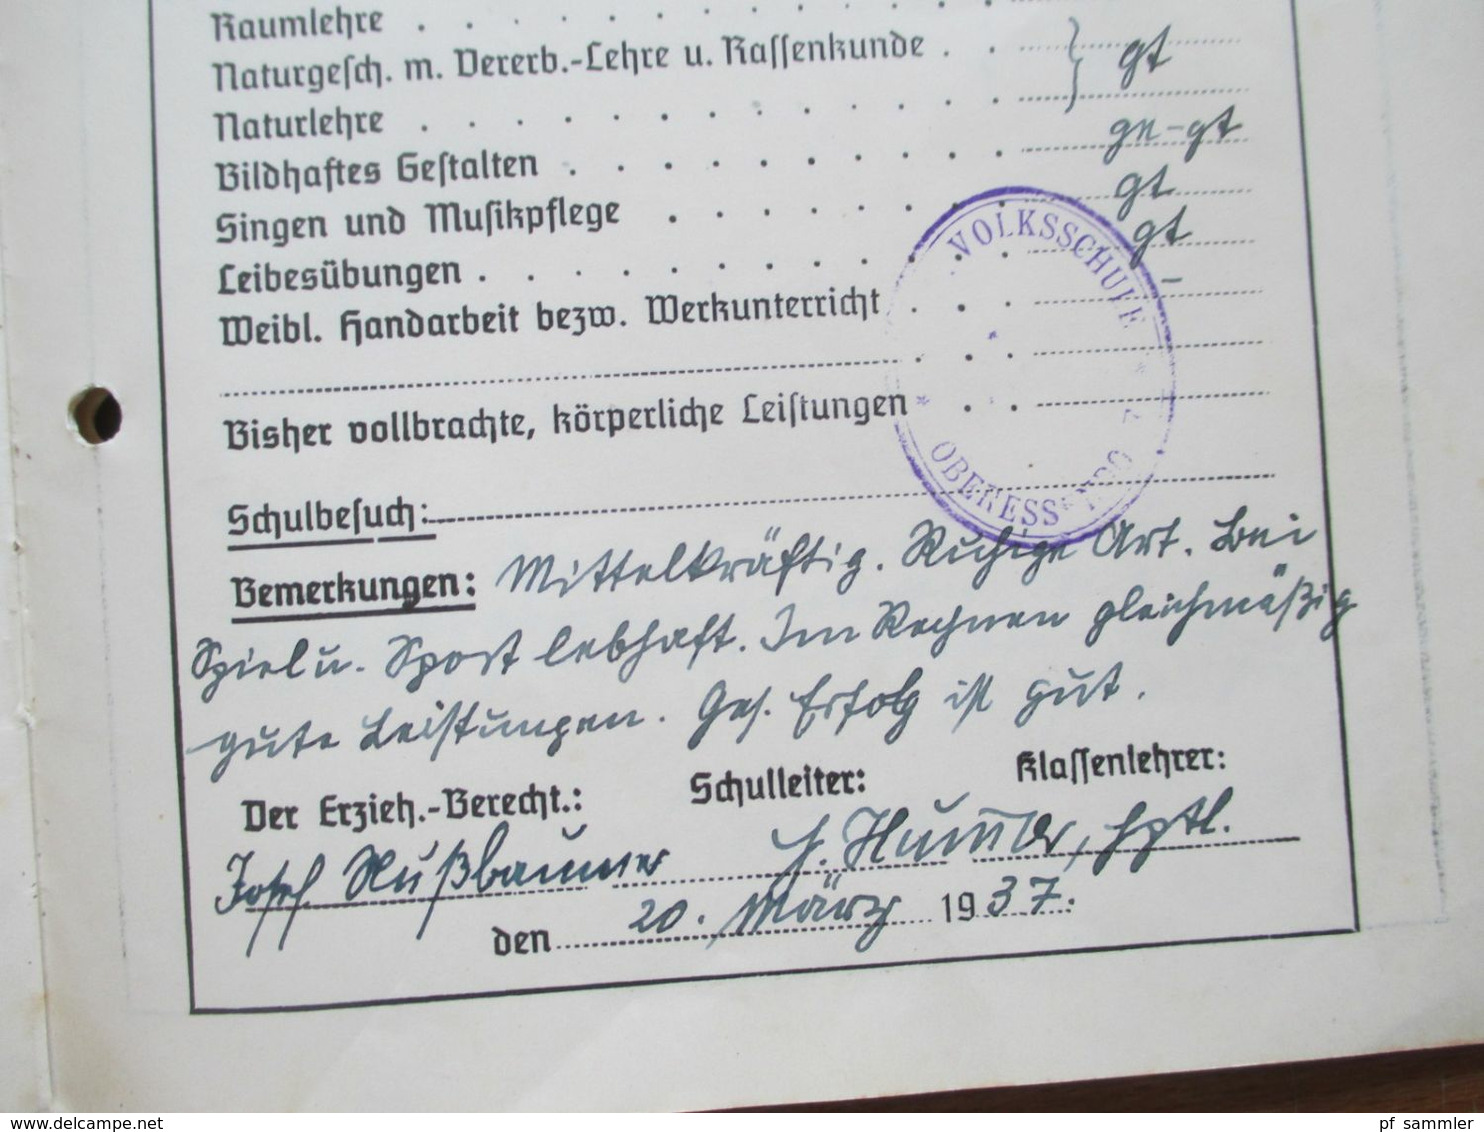 Raumlehre
Naturgesch. m. Vererb.-Lehre u. Rassenkunde } gt
Naturlehre
Bildhaftes Gestalten ge-gt
Singen und Musikpflege gt
Leibesübungen gt
Weibl. Handarbeit bezw. Werkunterricht –
Bisher vollbrachte, körperliche Leistungen
VOLKSSCHULE
OBERESSEN
Schulbesuch:
Bemerkungen: Mittelkräftig. Ruhige Art. Bei
Spiel u. Sport lebhaft. Im Rechnen gleichmäßig
gute Leistungen. Ges. Erfolg ist gut.
Der Erzieh.-Berecht.: Schulleiter: Klassenlehrer:
Josef Nußbaumer
den 20. März 1937.
www.delcampe.net
pf_sammler